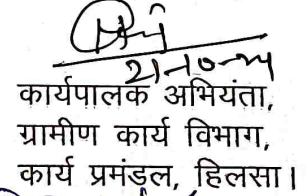 21-10-24
कार्यपालक अभियंता,
ग्रामीण कार्य विभाग,
कार्य प्रमंडल, हिलसा।